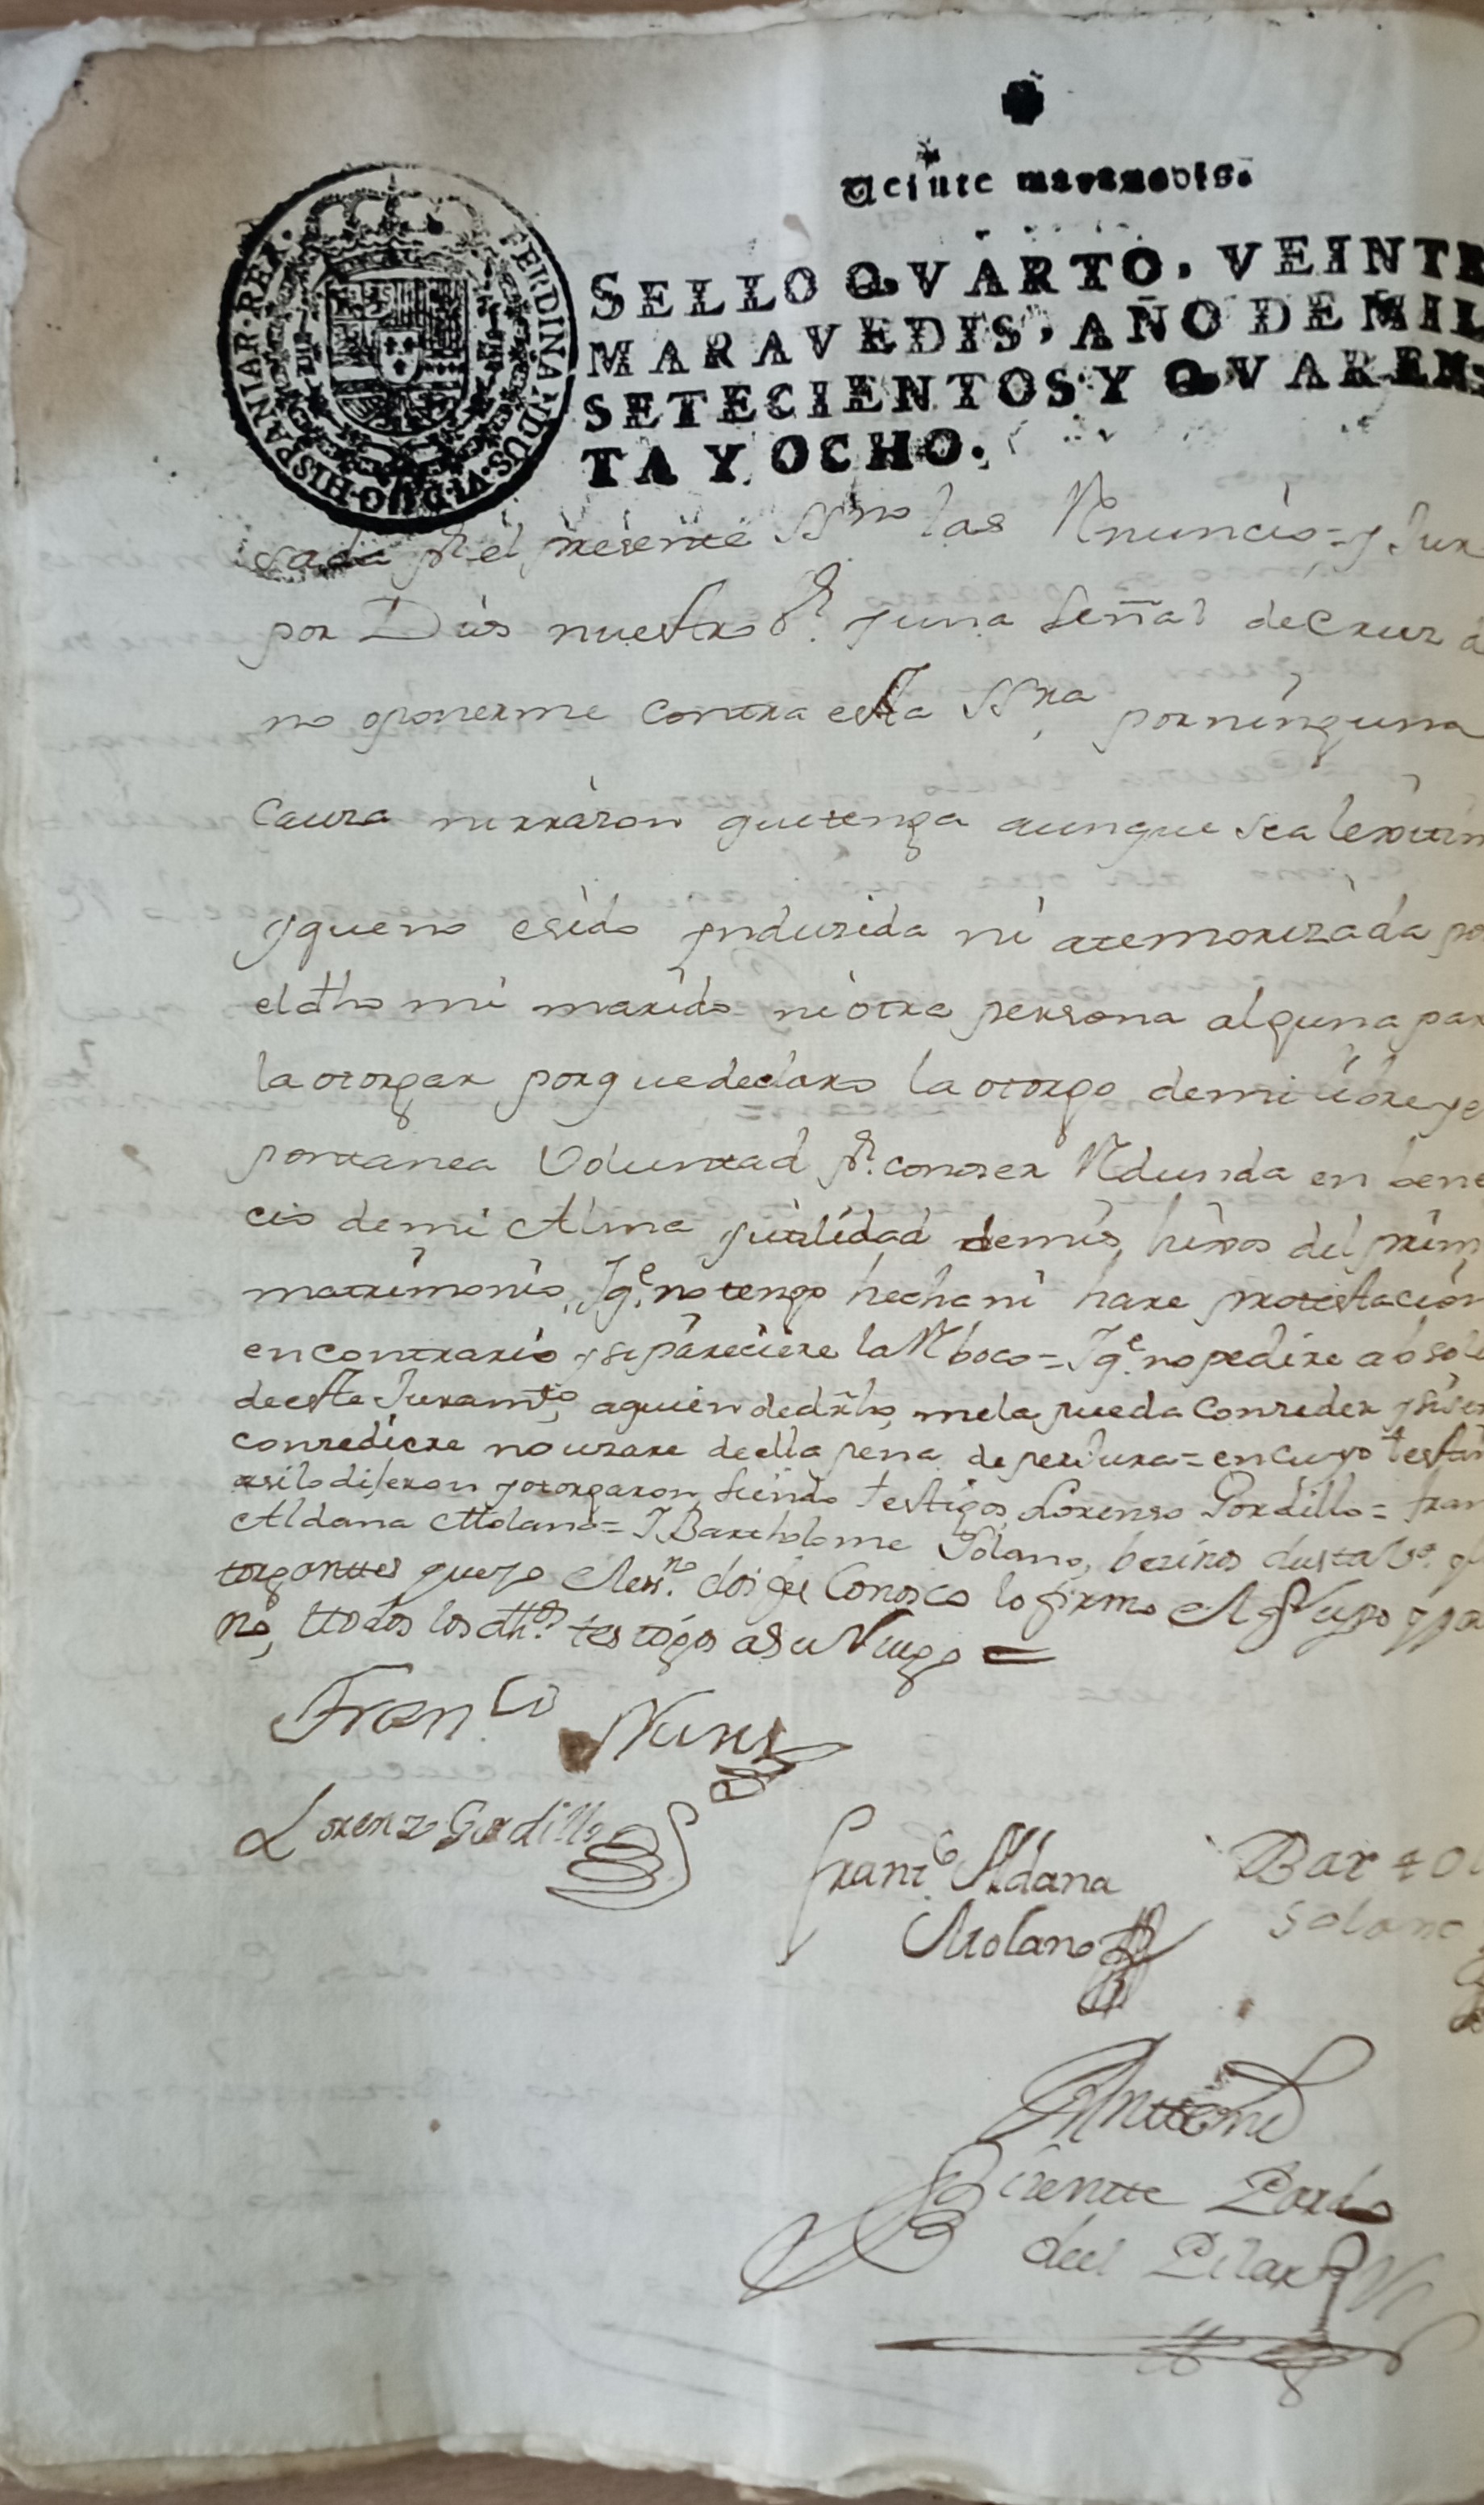 Veinte maravedis.
SELLO QVARTO, VEINTE
MARAVEDIS, AÑO DE MIL
SETECIENTOS Y QVAREN-
TA Y OCHO.
FERDINANDUS·VI·D·G·HISPANIAR·REX·
sada pr. el presente SSno las Rnuncio=y Jur
por Dios nuestro Sr. y una señal de Cruz a
no oponerme contra esta SSra, por ninguna
Causa ni rrazon que tenga aunque sea lexitim
y que no e sido ynduzida ni atemorizada po
el dho mi marido ni otra persona alguna par
la otorgar porque declaro la otorgo de mi libre y e
pontanea Voluntad pr. conoser Rdunda en bene
cio de mi Alma y utilidad de mis hixos del prim
matrimonio, Y qe. no tengo hecha ni hare protestacion
en contrario y si pareciere la Rboco= Y qe. no pedire absolu
de este Juramto, a quien de drho, me la pueda Conzeder y si se
conzediere no uzare de ella pena de perjura= en cuyo testim
asi lo dijeron y otorgaron siendo testigos Lorenso Gordillo= fran
Aldana Molano= Y Bartholome Solano, bezinos desta Va. y
torganttes que yo el essno. doi fee Conosco lo firmo el qe Supo y po
no, Uno de los dhos testigos a su Ruego =
Franco Nuñz
Lorenzo Gordillo
franco. Aldana
Molano
Bartol
Solano
Antte mi
Vizentte Pardo
del Pilar